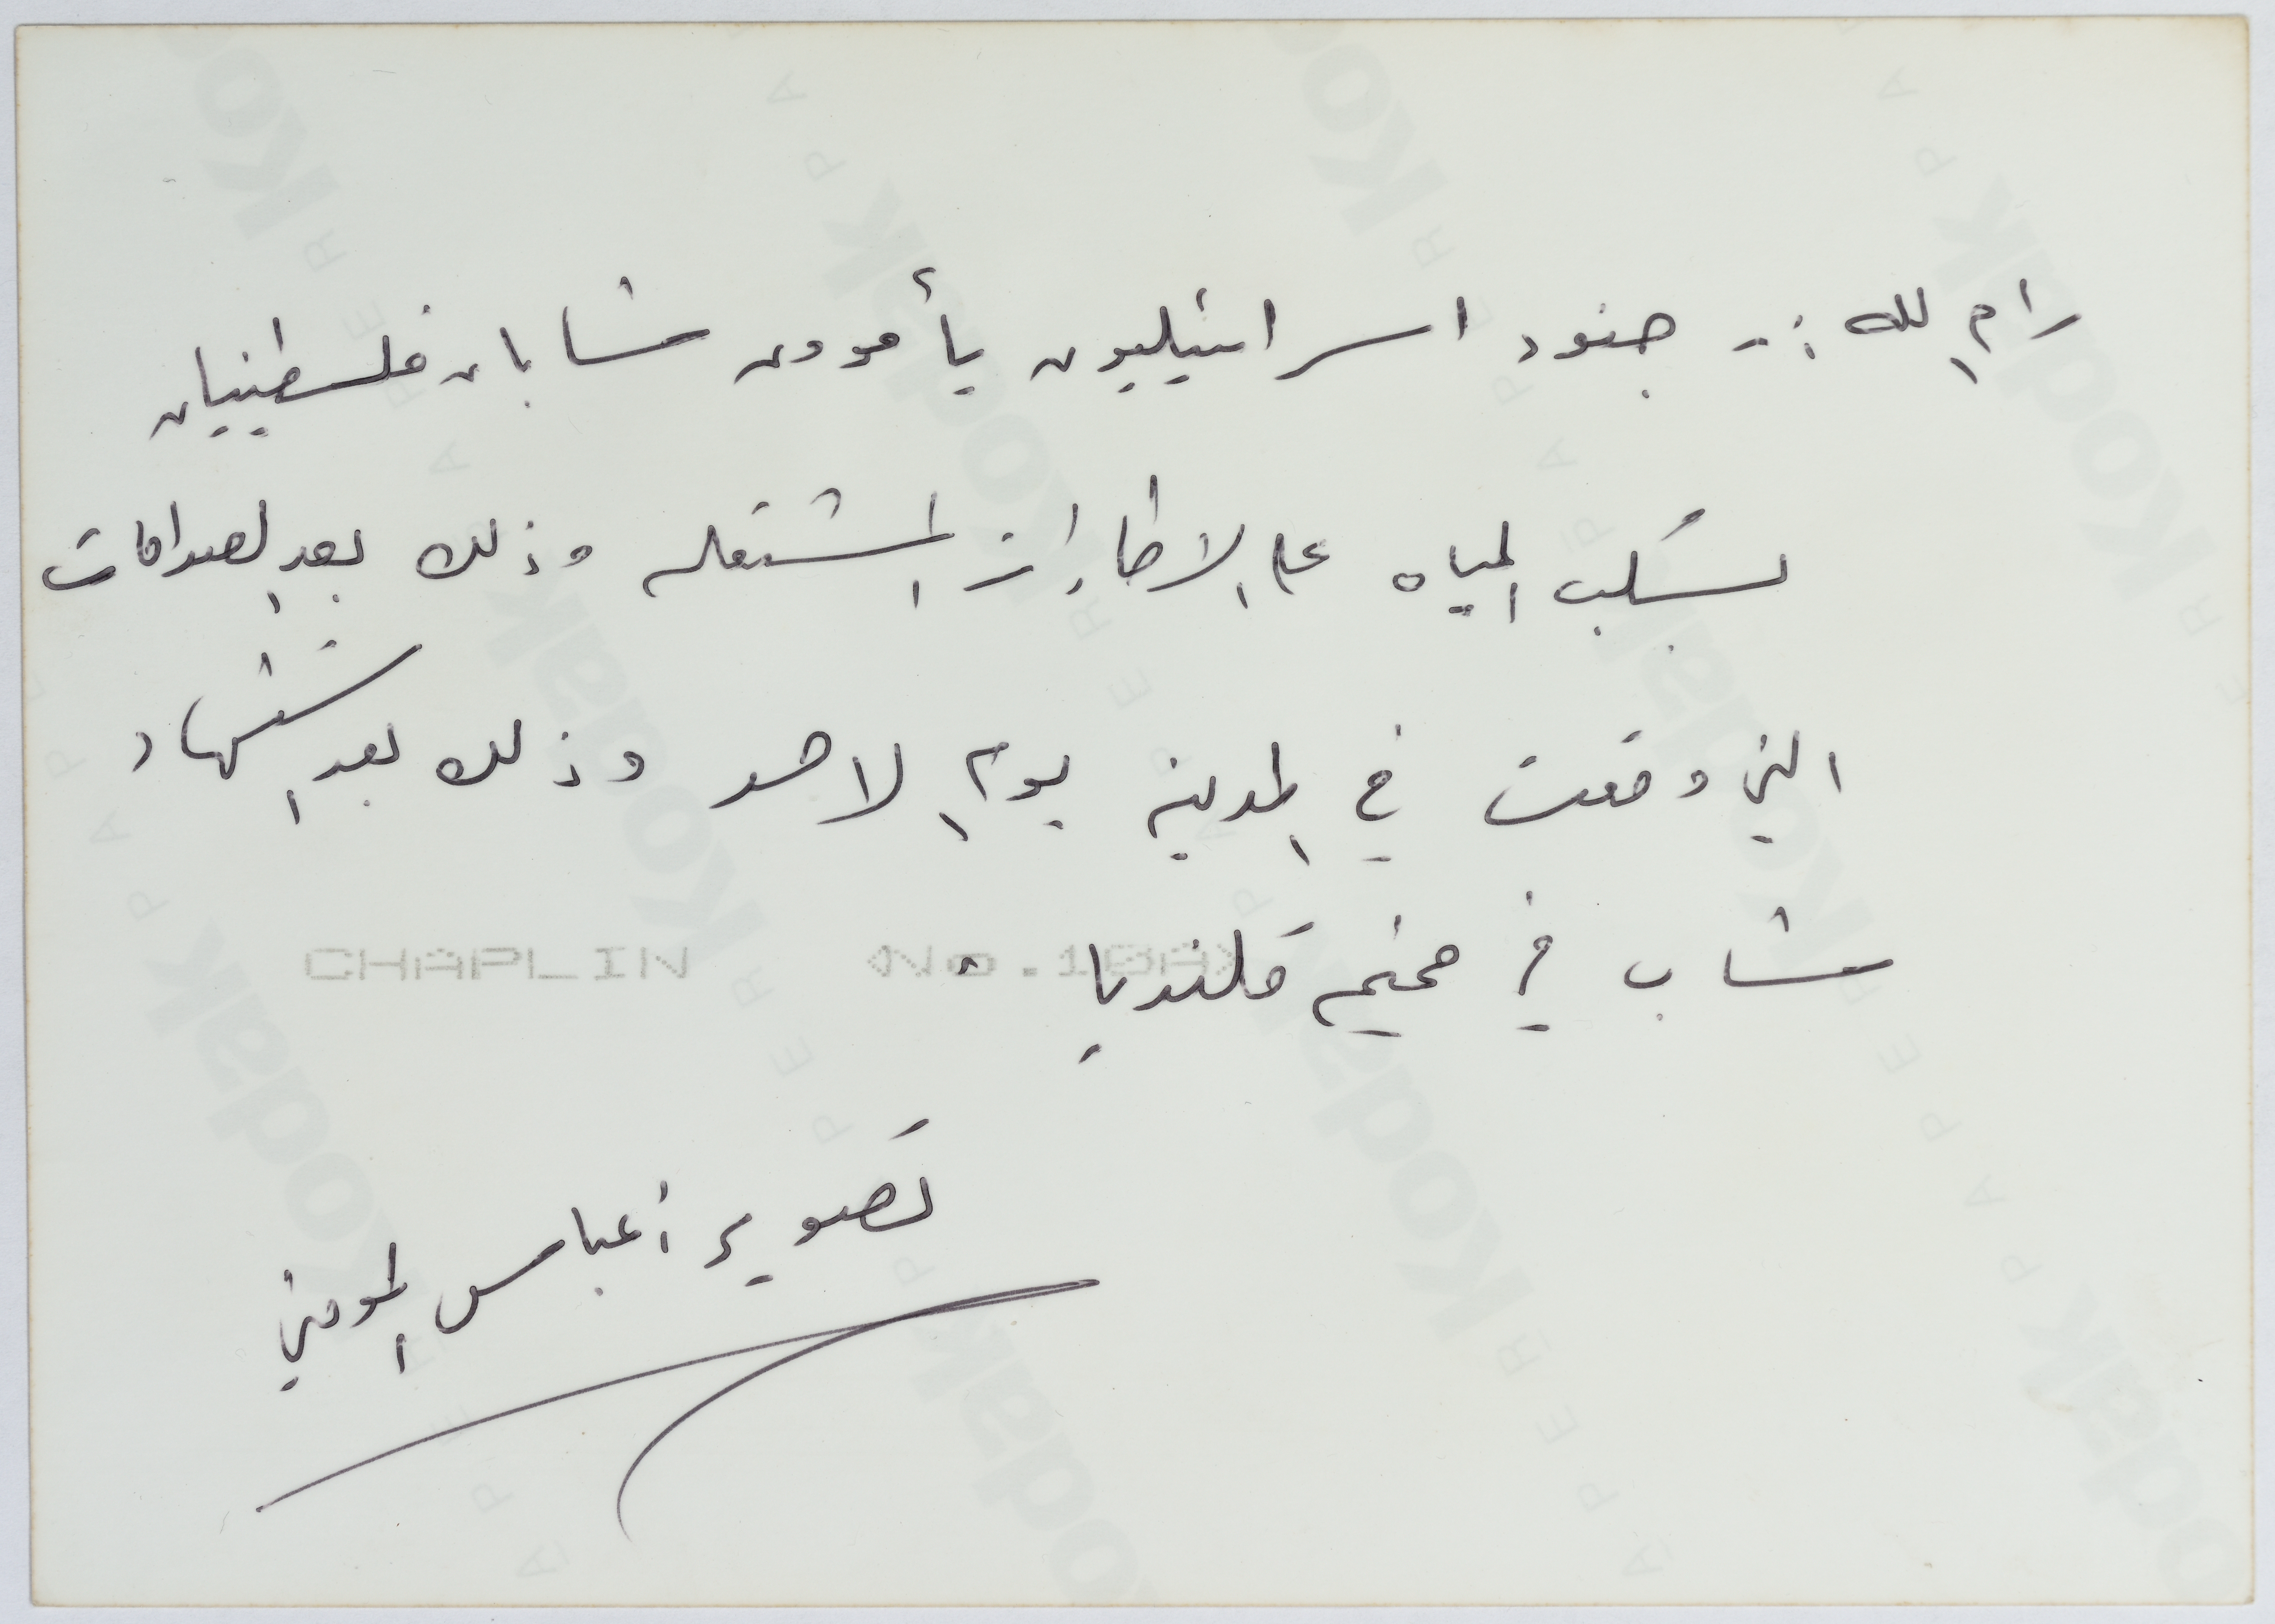 رام الله :- جنود اسرائيليون يأمرون شابان فلسطينيان
بسكب المياه على الاطارات المشتعله وذلك بعد الصدامات
التي وقعت في المدينة يوم الاحد وذلك بعد استشهاد
شاب في مخيم قلنديا .
CHAPLIN <No.18A>
تصوير : عباس المومني
Kodak
PAPER